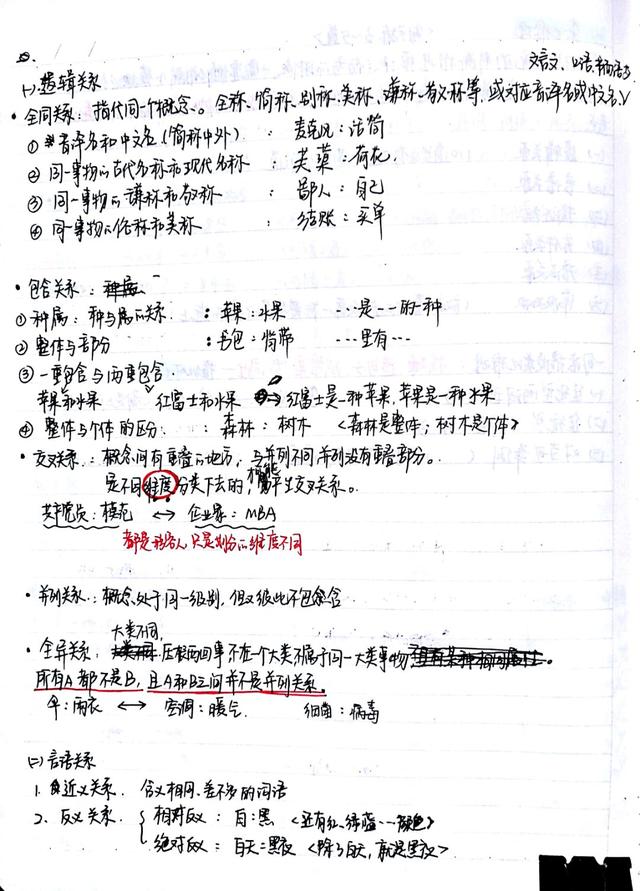 文言文、口语书面语3
㈠ 逻辑关系
• 全同关系:指代同个概念。全称、简称、别称、美称、谦称、敬称等,或对应音译名或中文名
① 音译名和中文名(简称中外): 麦克风:话筒
② 同一事物的古代名称和现代名称 芙蕖:荷花
③ 同一事物的谦称和敬称 : 鄙人:自己
④ 同一事物的俗称和美称 : 结账:买单
• 包含关系:种属
① 种属:种与属的关系 :苹果:水果 …是…的一种
② 整体与部分 :书包:背带 …里有…
③ 一重包含与两重包含
苹果和水果 红富士和水果 红富士是一种苹果,苹果是一种水果
④ 整体与个体的区分: 森林:树木 <森林是整体;树木是个体>
• 交叉关系:概念间有重叠的地方,与并列不同并列没有重叠部分。
是不同维度分类下去的,才能产生交叉关系。
共产党员:模范 ↔ 企业家:MBA
都是 只是划分的维度不同
• 并列关系:概念处于同一级别,但又彼此不包含
大类不同,
• 全异关系: 压根两回事不在一个大类不属于同一大类事物
所有A都不是B,且A和B之间并不是并列关系。
伞:雨衣 ↔ 空调:暖气 细菌:病毒
㈡ 言语关系
1. 近义关系. 含义相同、差不多的词语
2. 反义关系. 相对反义:白:黑 <还有红、绿、蓝…颜色>
绝对反义:白天:黑夜 <除了白天,就是黑夜>